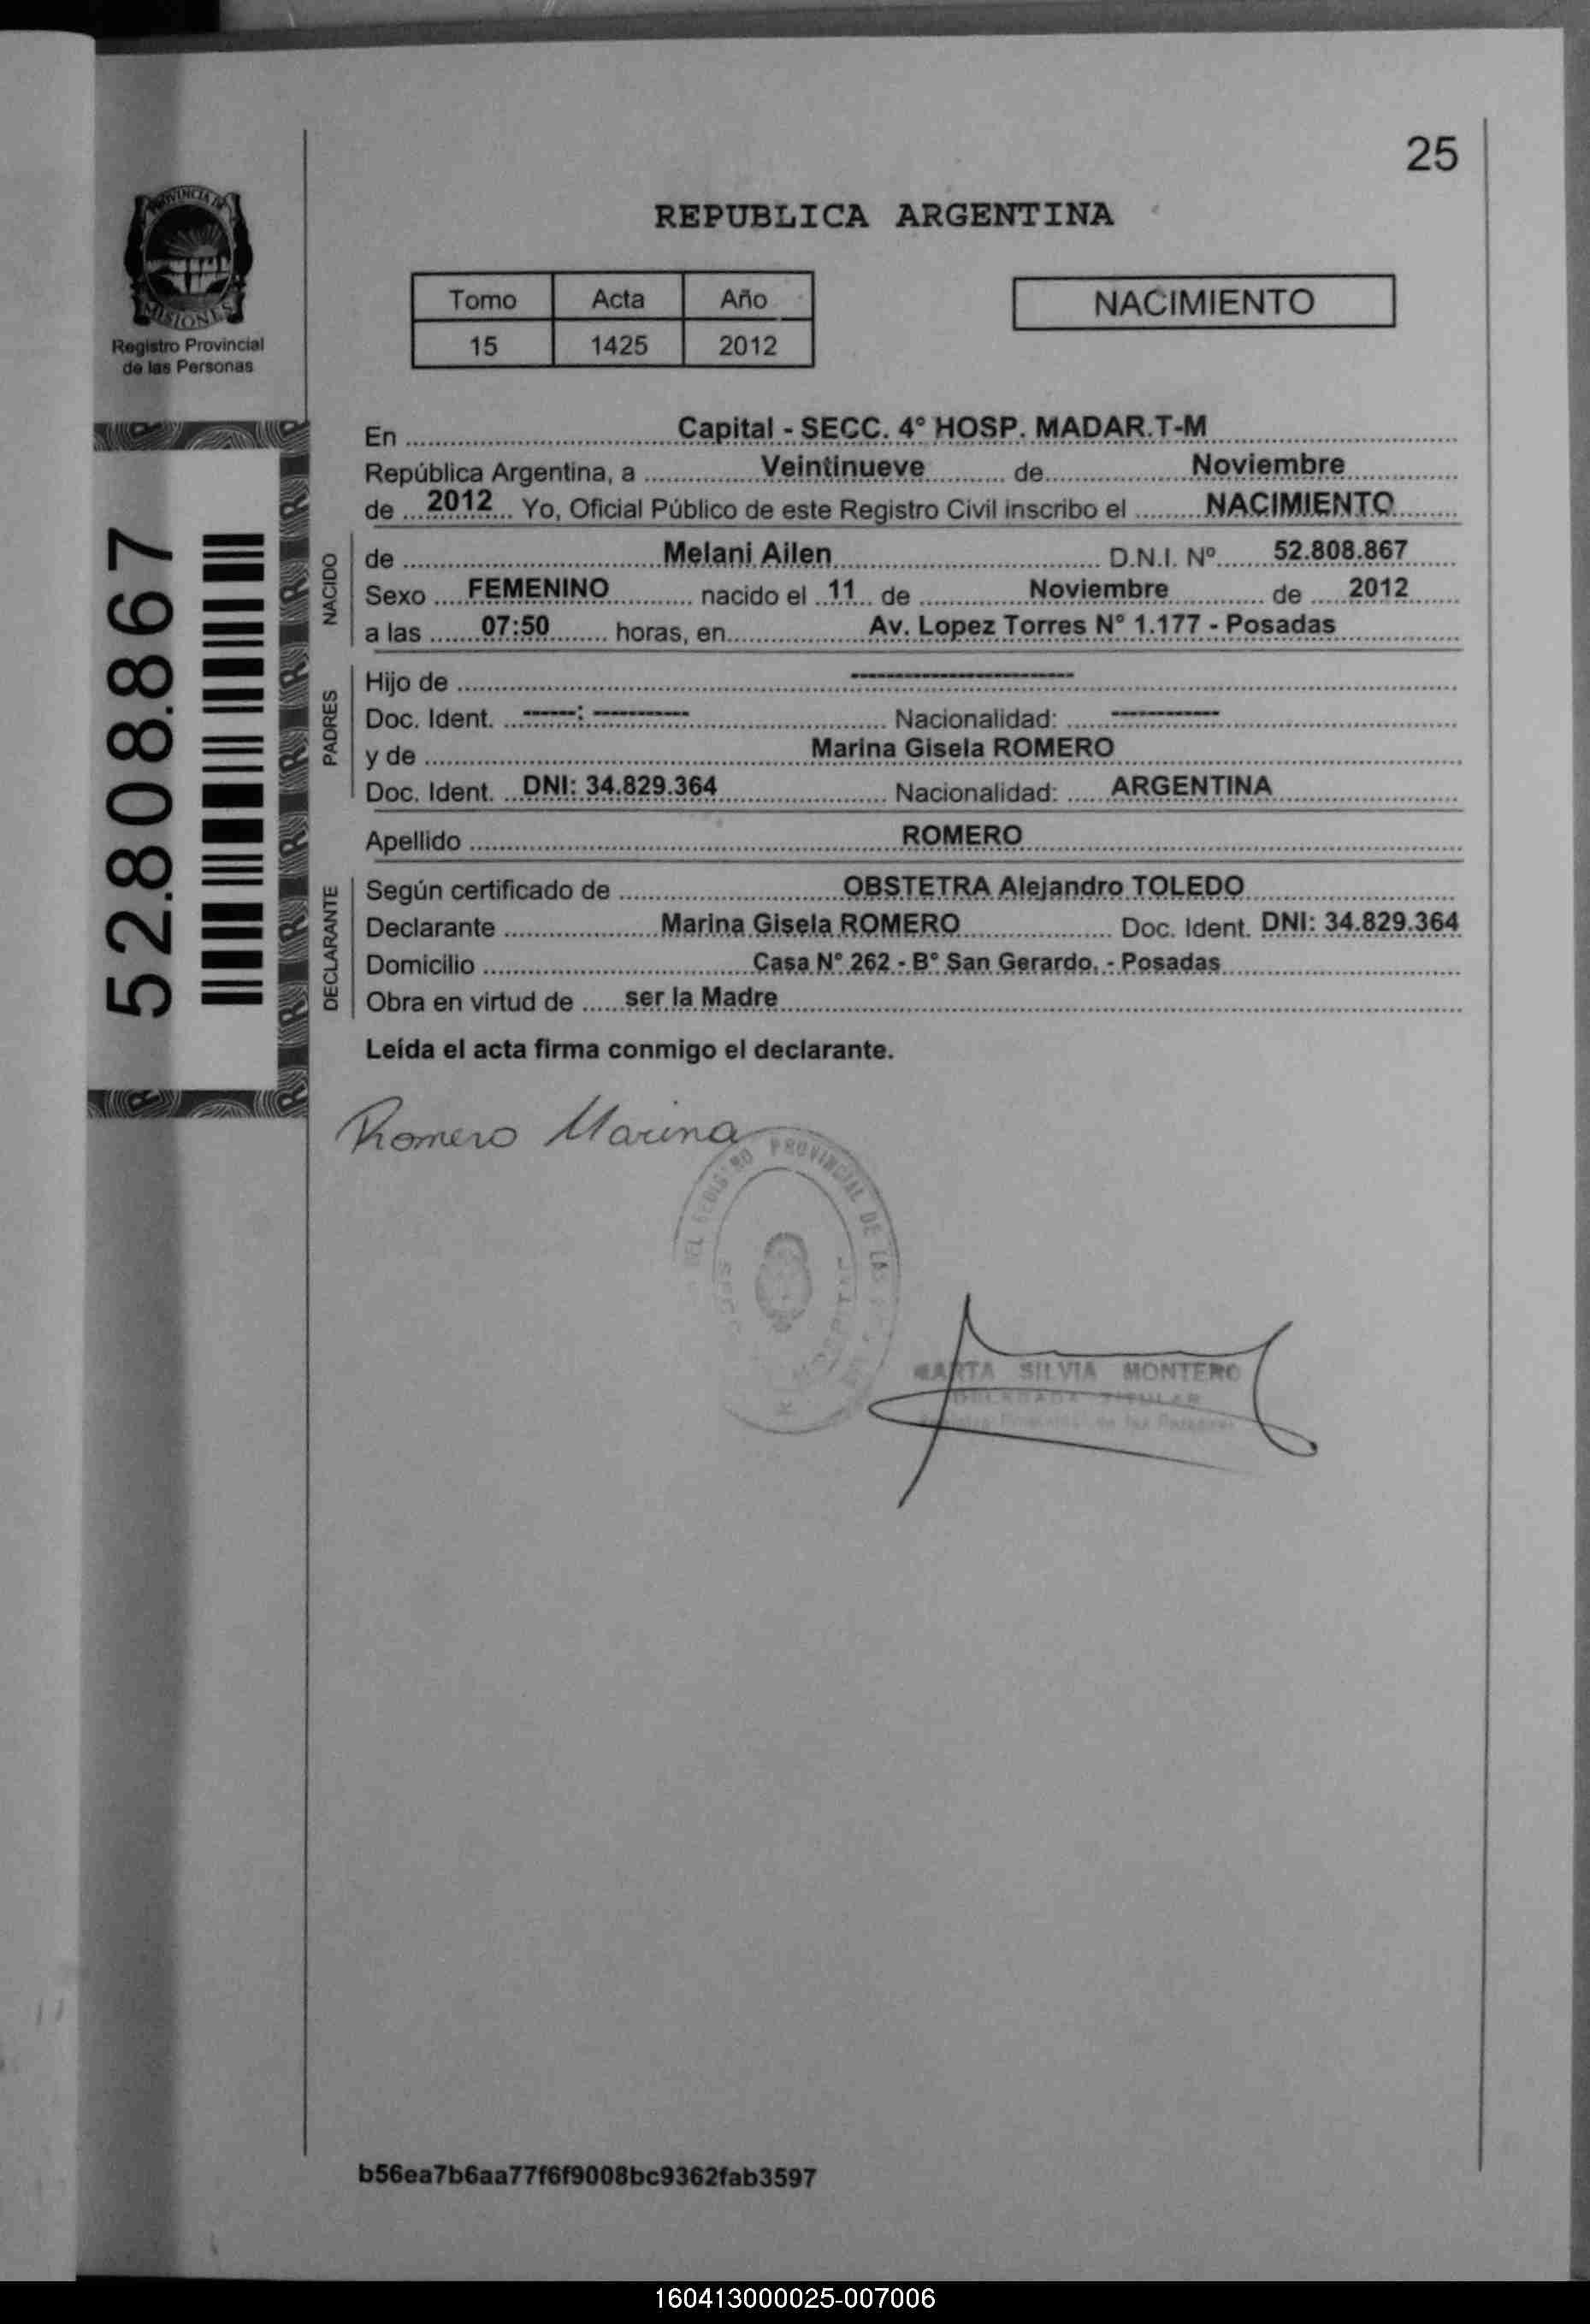 25
PROVINCIA DE
MISIONES
Registro Provincial
de las Personas
REPUBLICA ARGENTINA
Tomo Acta Año
15 1425 2012
NACIMIENTO
52.808.867
En Capital - SECC. 4° HOSP. MADAR.T-M
República Argentina, a Veintinueve de Noviembre
de 2012 Yo, Oficial Público de este Registro Civil inscribo el NACIMIENTO
NACIDO
de Melani Ailen D.N.I. Nº 52.808.867
Sexo FEMENINO nacido el 11 de Noviembre de 2012
a las 07:50 horas, en Av. Lopez Torres N° 1.177 - Posadas
PADRES
Hijo de ----------
Doc. Ident. -----: ---------- Nacionalidad: ----------
y de Marina Gisela ROMERO
Doc. Ident. DNI: 34.829.364 Nacionalidad: ARGENTINA
Apellido ROMERO
DECLARANTE
Según certificado de OBSTETRA Alejandro TOLEDO
Declarante Marina Gisela ROMERO Doc. Ident. DNI: 34.829.364
Domicilio Casa N° 262 - B° San Gerardo, - Posadas
Obra en virtud de ser la Madre
Leída el acta firma conmigo el declarante.
Romero Marina
DEL REGISTRO PROVINCIAL DE LAS
MARTA SILVIA MONTERO
DELEGADA TITULAR
Registro Provincial de las Personas
b56ea7b6aa77f6f9008bc9362fab3597
160413000025-007006